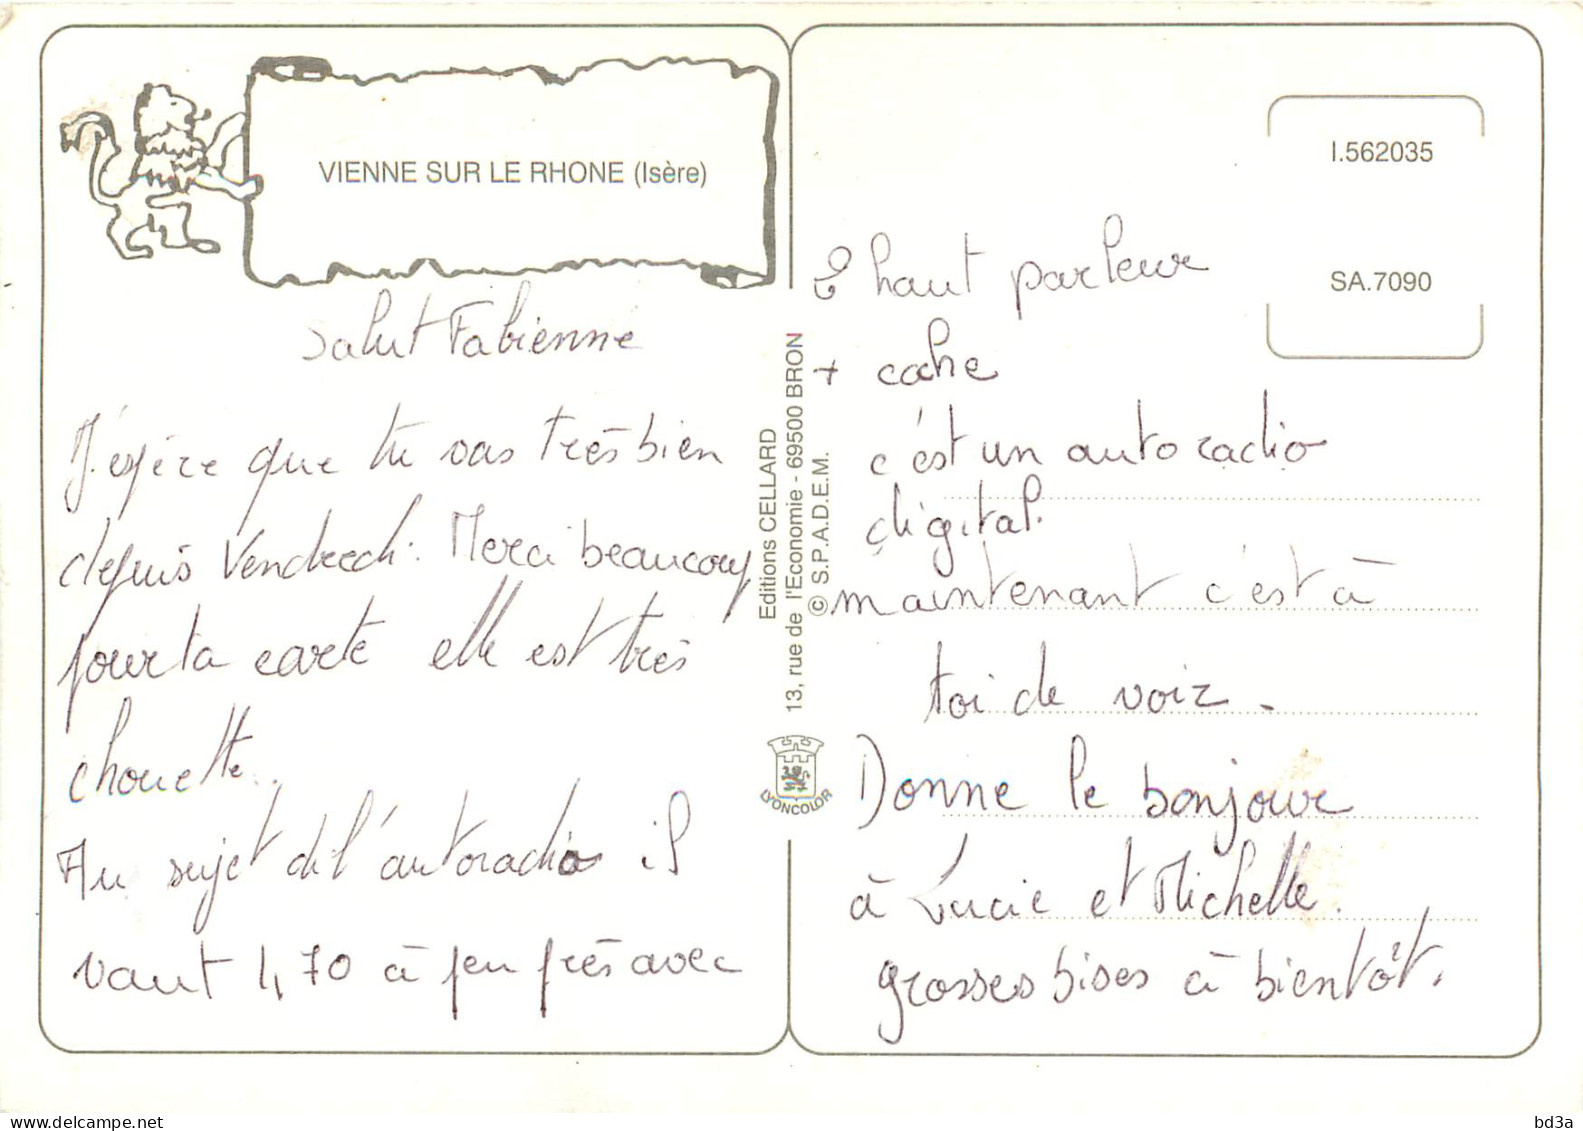 VIENNE SUR LE RHONE (Isère)
Salut Fabienne
J'espère que tu vas très bien
depuis Vendredi. Merci beaucoup
pour ta carte elle est très
chouette..
Au sujet de l'autoradio il
vaut 1,70 à peu près avec
Editions CELLARD
13, rue de l'Economie - 69500 BRON
© S.P.A.D.E.M.
LYONCOLOR
I.562035
SA.7090
2 haut parleur
+ cache
c'est un autoradio
digital.
maintenant c'est à
toi de voir.
Donne le bonjour
à Lucie et Michelle.
grosses bises à bientôt.
bd3a